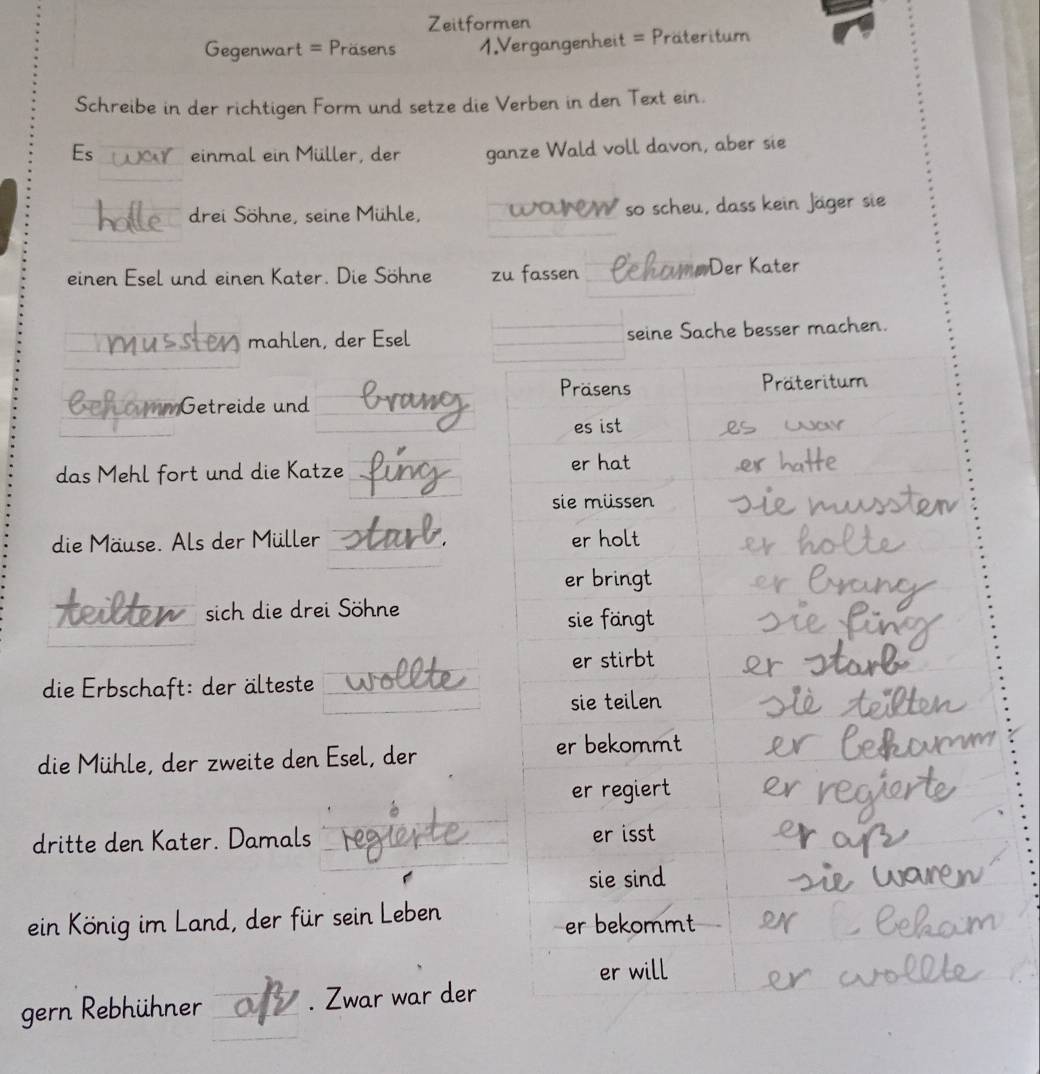 Zeitformen
Gegenwart = Präsens 1.Vergangenheit = Präteritum
Schreibe in der richtigen Form und setze die Verben in den Text ein.
Es war einmal ein Müller, der
hatte drei Söhne, seine Mühle,
einen Esel und einen Kater. Die Söhne
mussten mahlen, der Esel
bekamm Getreide und brang
das Mehl fort und die Katze fing
die Mäuse. Als der Müller starb.
teilten sich die drei Söhne
die Erbschaft: der älteste wollte
die Mühle, der zweite den Esel, der
dritte den Kater. Damals regierte
ein König im Land, der für sein Leben
gern Rebhühner aß. Zwar war der
ganze Wald voll davon, aber sie
waren so scheu, dass kein Jäger sie
zu fassen bekamm Der Kater
seine Sache besser machen.
Präsens Präteritum
es ist es war
er hat er hatte
sie müssen sie mussten
er holt er holte
er bringt er brang
sie fängt sie fing
er stirbt er starb
sie teilen sie teilten
er bekommt er bekamm
er regiert er regierte
er isst er aß
sie sind sie waren
er bekommt er bekam
er will er wollte